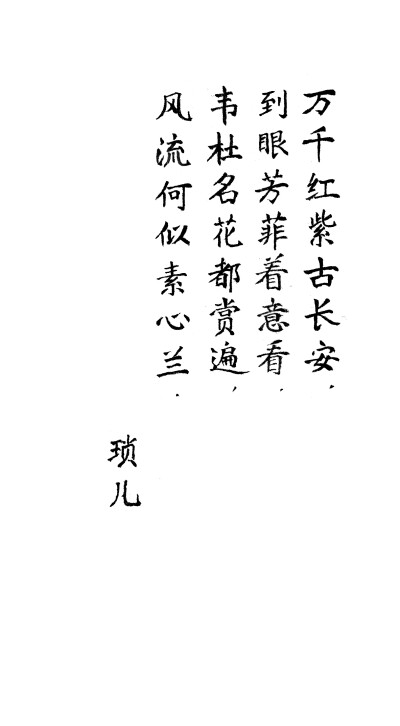 万千红紫古长安，
到眼芳菲着意看．
韦杜名花都赏遍，
风流何似素心兰．
琐儿